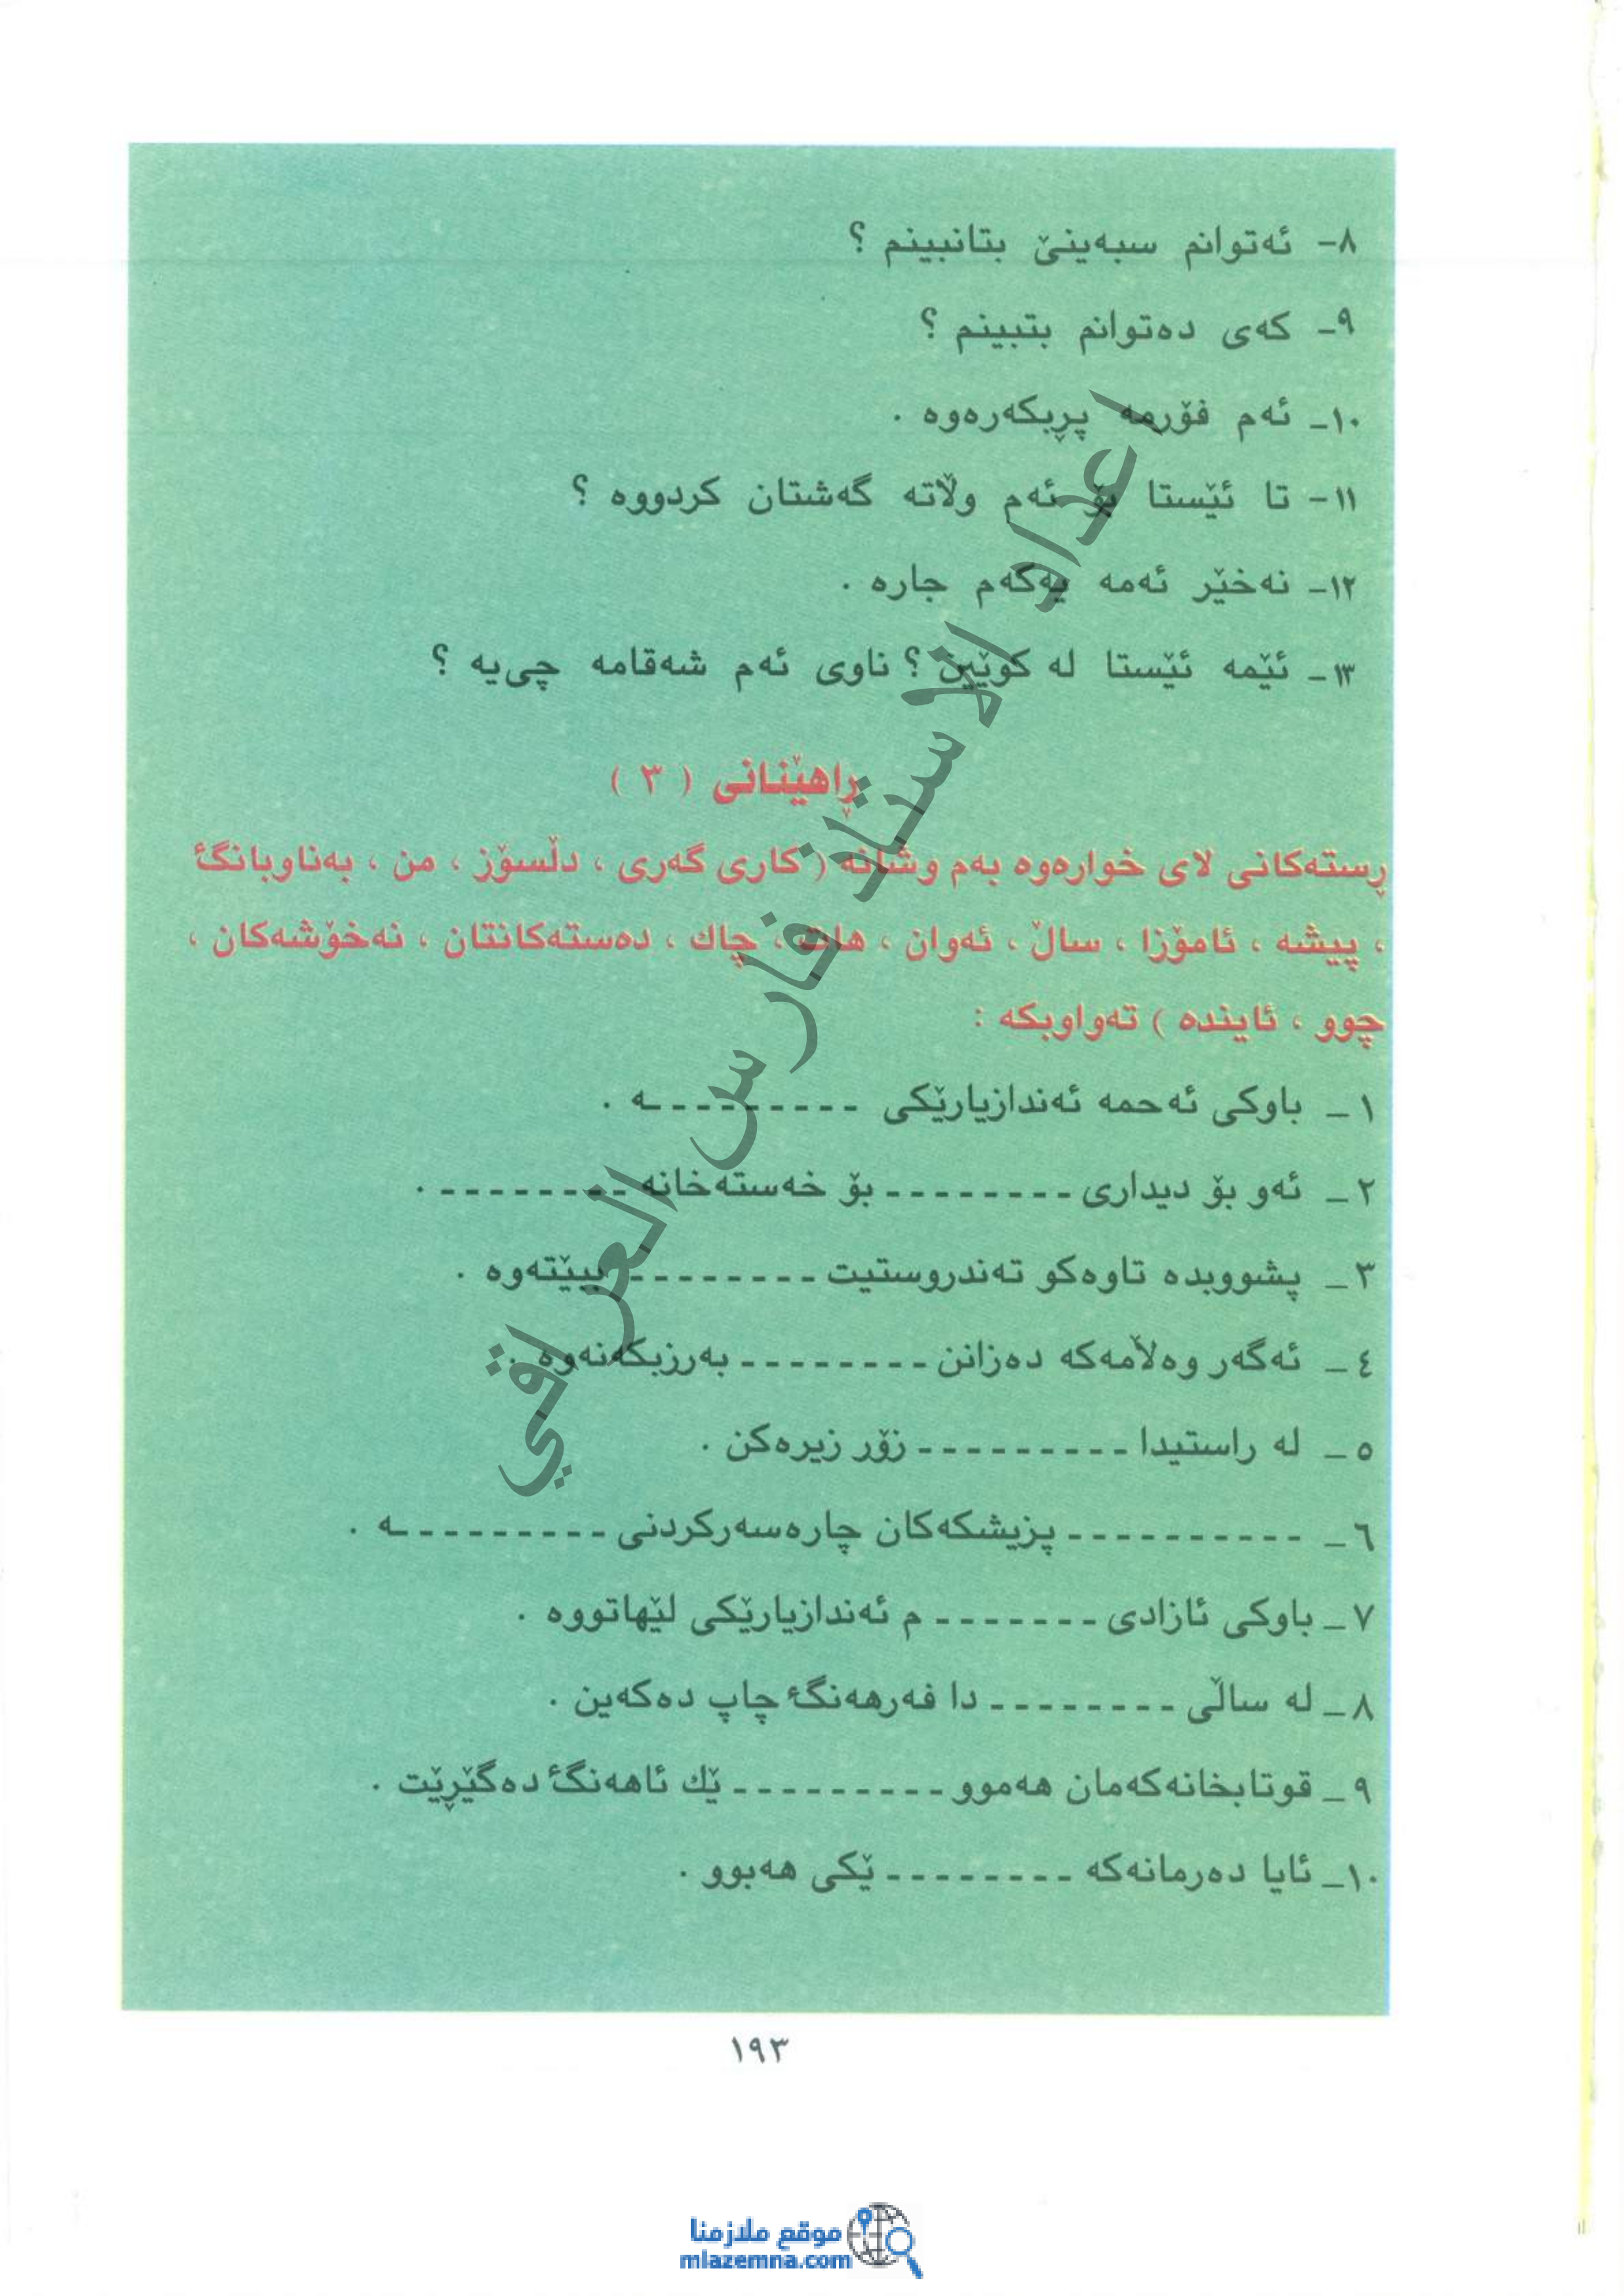 ٨- ئەتوانم سبەینێ بتانبینم ؟
٩- کەی دەتوانم بتبینم ؟
١٠- ئەم فۆرمە پڕبکەرەوە .
١١- تا ئێستا بۆ ئەم وڵاتە گەشتان کردووە ؟
١٢- نەخێر ئەمە یەکەم جارە .
١٣- ئێمە ئێستا لە کوێین ؟ ناوی ئەم شەقامە چی‌یە ؟
ڕاهێنانی ( ٣ )
ڕستەکانی لای خوارەوە بەم وشانە ( کاری گەری ، دڵسۆز ، من ، بەناوبانگ
، پیشە ، ئامۆزا ، ساڵ ، ئەوان ، هات ، چاك ، دەستەکانتان ، نەخۆشەکان ،
چوو ، ئایندە ) تەواوبکە :
١ – باوکی ئەحمە ئەندازیارێکی ---------ە .
٢ – ئەو بۆ دیداری -------- بۆ خەستەخانە -------- .
٣ – پشووبدە تاوەکو تەندروستیت -------- ببێتەوە .
٤ – ئەگەر وەڵامەکە دەزانن -------- بەرزبکەنەوە .
٥ – لە راستیدا --------- زۆر زیرەکن .
٦ – ---------- پزیشکەکان چارەسەرکردنی ---------ە .
٧ – باوکی ئازادی ------- م ئەندازیارێکی لێهاتووە .
٨ – لە ساڵی -------- دا فەرهەنگ چاپ دەکەین .
٩ – قوتابخانەکەمان هەموو --------- ێك ئاهەنگ دەگێڕێت .
١٠ – ئایا دەرمانەکە -------- ێکی هەبوو .
١٩٣
اعداد الاستاذ فارس العراقي
موقع ملازمنا
mlazemna.com